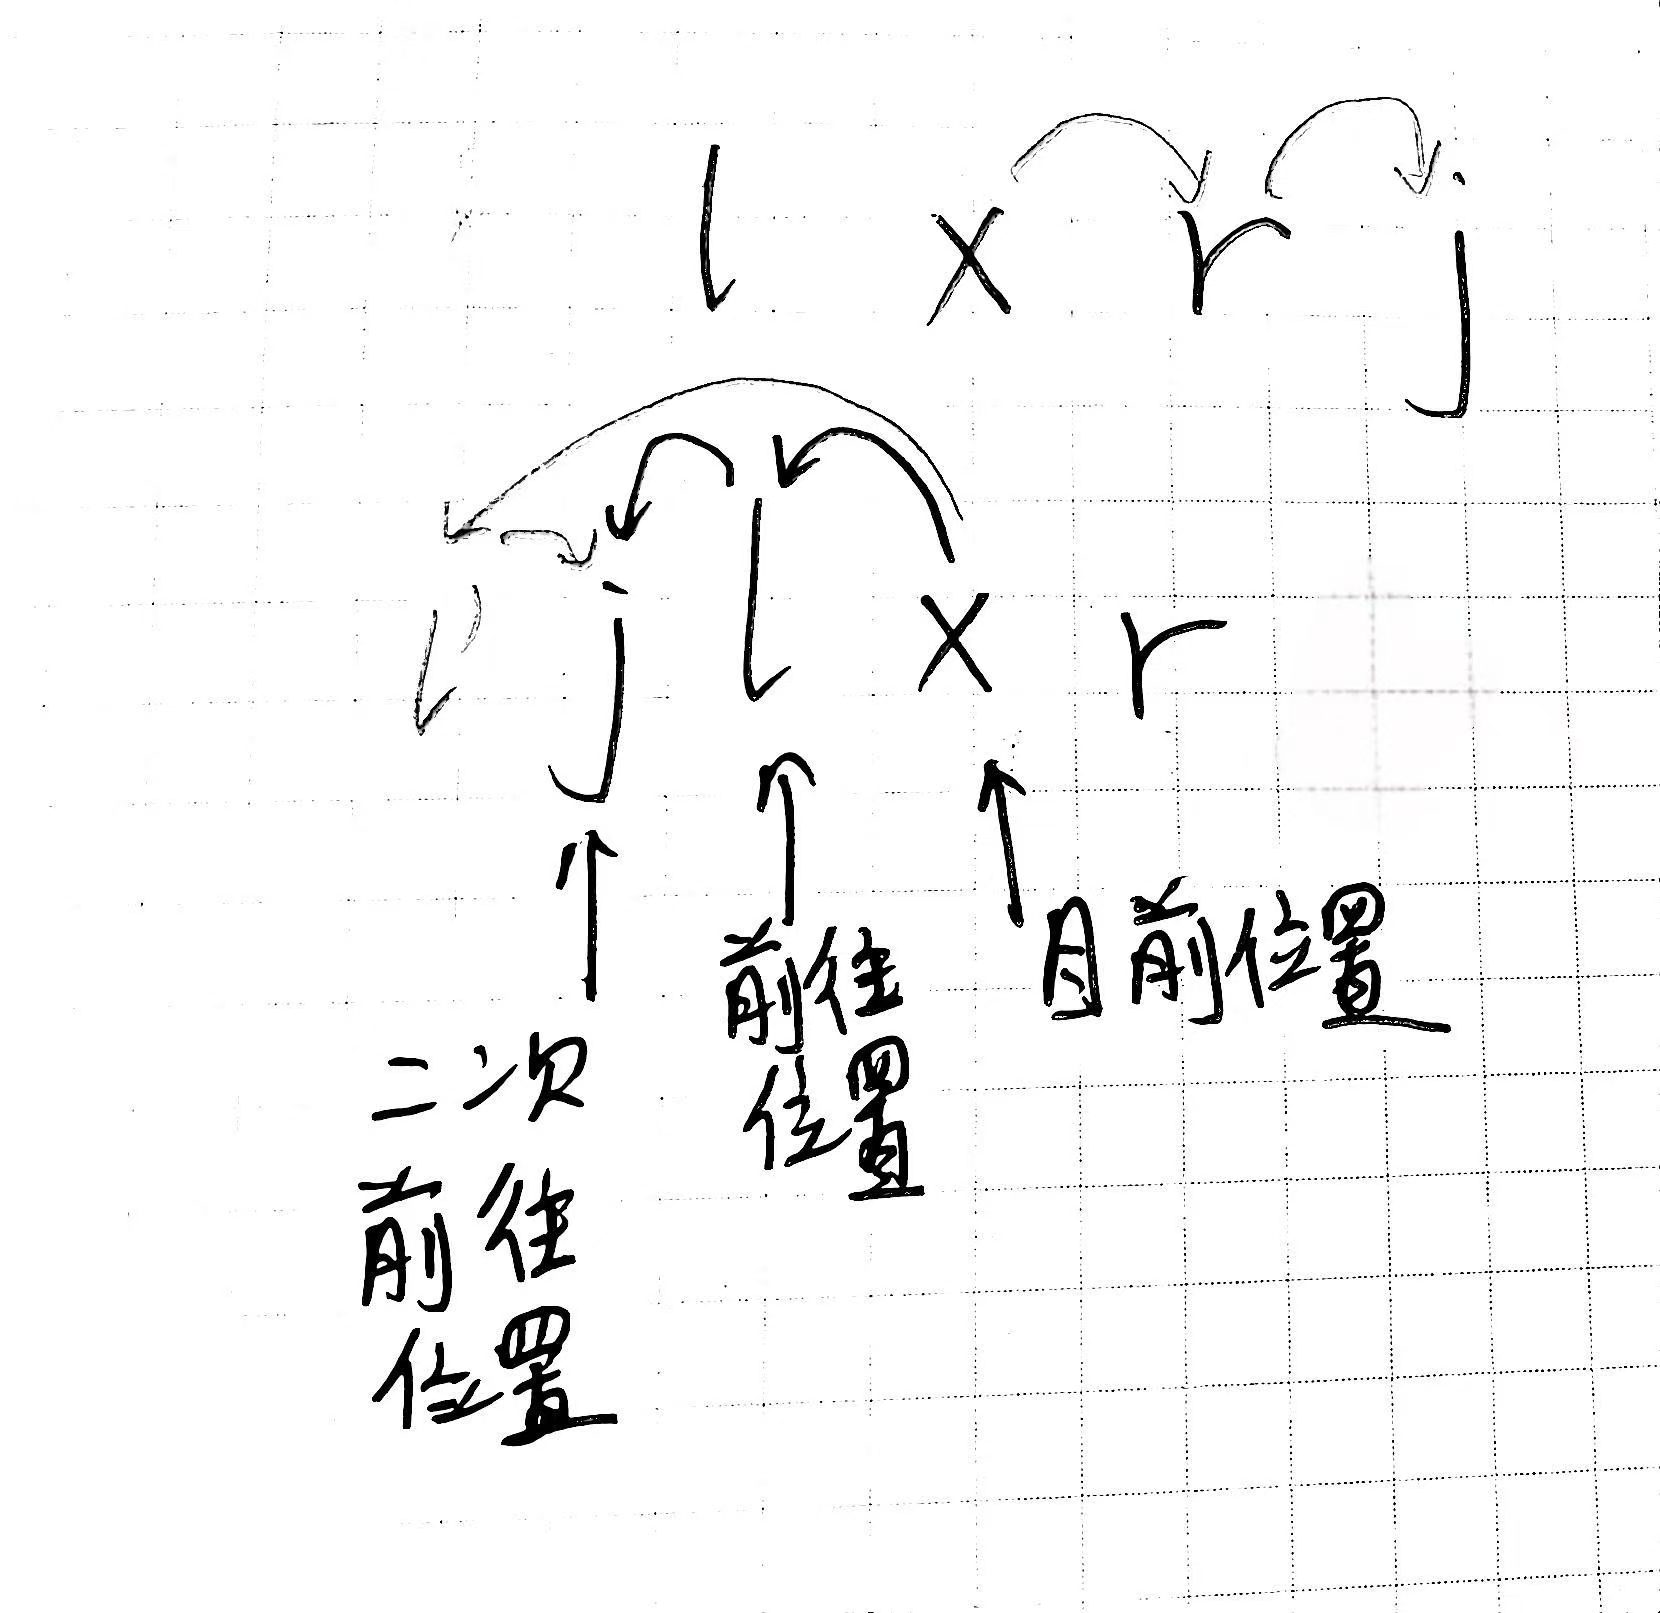 l x r j
l' j l x r
目前位置
前往
位置
二次
前往
位置